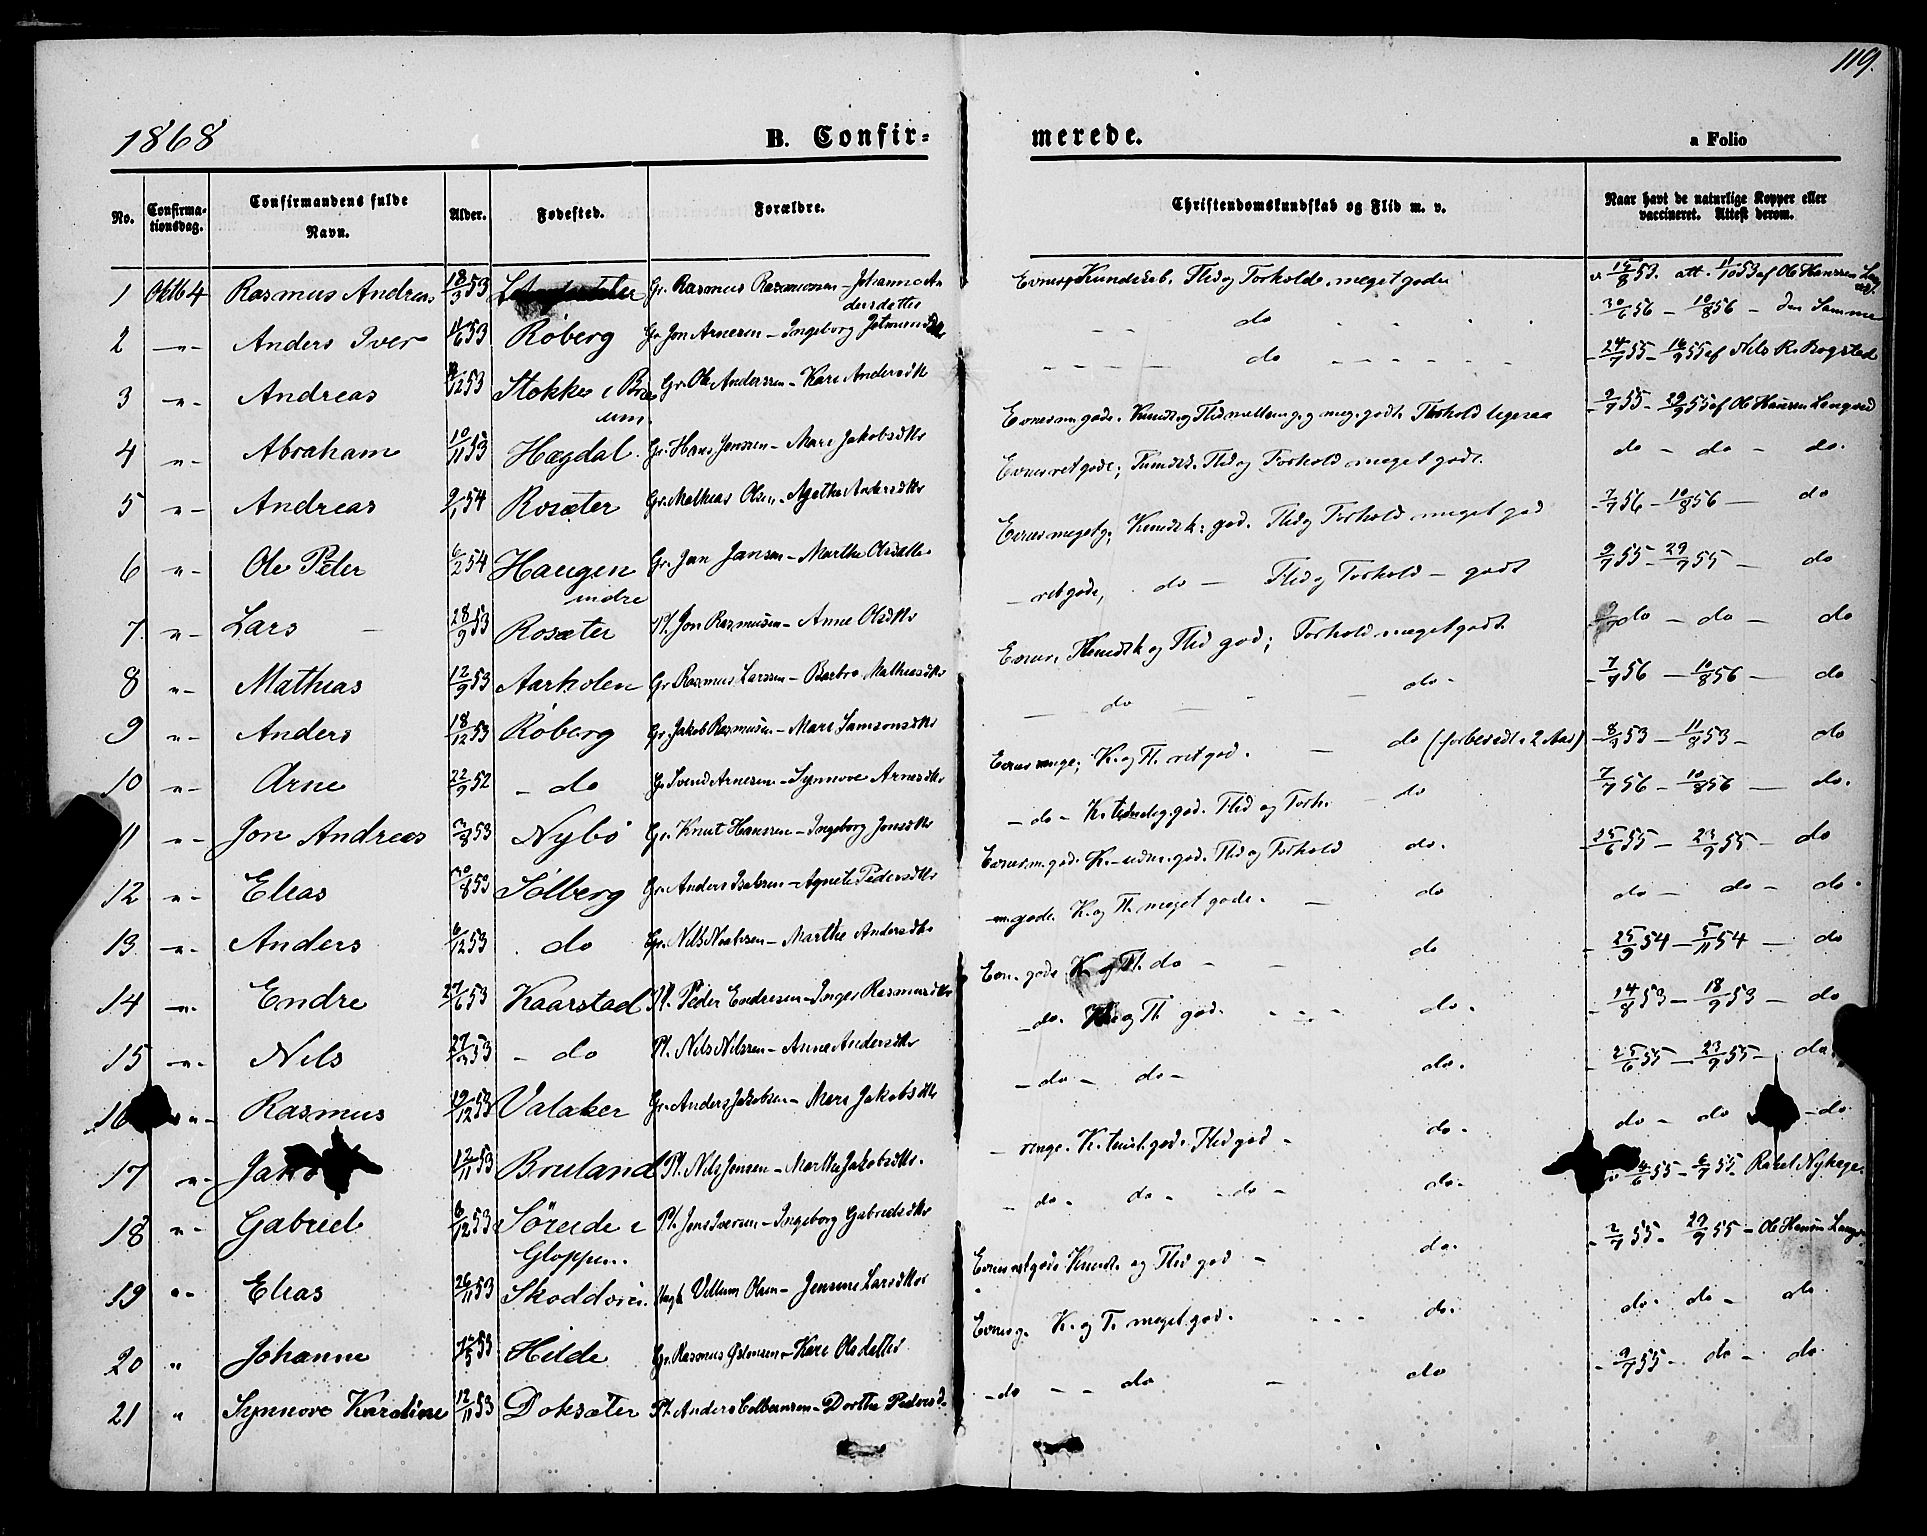 119.
1868 B. Confir= merede. a Folio
No. Confirma-tionsdag. Confirmandens fulde Navn. Alder. Fødested. Forældre. Christendomskundskab og Flid m. v. Naar havt de naturlige Kopper eller vaccineret. Attest derom.
1 Oktb 4 Rasmus Andreas 18/3 53 Gr. Rasmus Rasmussen - Johanne Andersdatter Evner, Kundskab, Flid og Forhold meget gode 15/8 53. att. 11/10 53 af Ole Hanssen
2 -"- Anders Iver 11/6 53 Røberg Gr. Jon Arnesen - Ingeborg do 30/6 56 - 10/8 56 - den Samme
3 -"- Andreas 12 53 Stokke i Gr. Ole Anderssen - Kari Andersdtr do 24/7 55 - 16/9 55 af Nils R. Bogstad
4 -"- Abraham 10/11 53 Hægdal Gr. Hans Jenssen - Mari Jakobsdtr Evner m. gode. Forhold ligesaa 9/7 55 - 29/9 55 af Ole Hansen
5 -"- Andreas 9/1 54 Rosæter Gr. Mathias Olsen - Agathe Andersdtr Evner ret gode; Kundsk. Flid og Forhold meget godt do - do - do.
6 -"- Ole Peter 6/2 54 Haugen indre Gr. Jan Jansen - Marthe Olsdtr Evner meget g; Kundsk. god. Flid og Forhold meget god 7/7 56 - 10/8 56 - do
7 -"- Lars - 28/9 53 Rosæter Pl. Jon Rasmusen - Anne Olsdtr - ret gode, do - Flid og Forhold - godt 9/7 55 - 29/9 55 - do
8 -"- Mathias 12/9 53 Aarholen Gr. Rasmus Larssen - Barbro Mathiasdtr Evner, Kundsk og Flid god; Forhold meget godt do - do - do
9 -"- Anders 18/12 53 Røberg Gr. Jakob Rasmusen - Mari Samsonsdtr - do - - do - 7/7 56 - 10/8 56 - do
10 -"- Arne 22/9 52 - do Gr. Svend Arnesen - Synnove Arnesdtr Evner ringe; K. og Fl. ret god. - do (forberedt i 2 Aar) 8/3 53 - 11/8 53 - do
11 -"- Jon Andreas 3/8 53 Nybø Gr. Knut Hanssen - Ingeborg Jonsdtr - do - K. temelig god. Flid og Forh. - do 7/7 56 - 10/8 56 - do.
12 -"- Elias 30/8 53 Sølberg Gr. Anders - Agnete Pedersdtr Evner m. gode. K. - god. Flid og Forhold do. 25/6 55 - 23/9 55 - do
13 -"- Anders 6/12 53 . do Gr. Nils - Marthe Andersdtr m gode. K. og Fl. meget gode. - do do - do - do.
14 -"- Endre 27/6 53 Kaarstad Pl. Peder Endresen - Inger Rasmusdtr Evn. gode K. og Fl. do - - do 25/9 54 - 5/11 54 - do
15 -"- Nils 27/ 53 - do Pl. Nils Nilssen - Anne Andersdtr - do. og Fl. god. do. 14/8 53 - 18/9 53 - do
16 -"- Rasmus 19/12 53 Valaker Gr. Anders Jakobsen - Mari Jakobsdtr - do - do - do. 25/6 55 - 23/9 55 - do
17 -"- 12/11 53 Bruland Pl. Nils Jensen - Marthe Jakobsdtr. - ringe. K. god. Flid god - do. do - do - do.
18 -"- Gabriel 6/12 53 Søreide i Gloppen. Pl. Jens Iversen - Ingeborg Gabrielsdtr - do - do - do - do - 6 55 - 6/7 55 - Rakel
19 "- Elias 26/11 53 Skoddvin. Villum Olsen - Jensine Larsdtr Evner ret gode Kundsk. og Flid god - do. 2/7 55 - 29/9 55 - Ole Hansen
20 " Johanne 53 Hilde Gr. Rasmus - Kari Olsdatter Evner g. K. og F. meget god. do. do. do - do.
21 " Synnove Karoline 12/11 53 Doksæter Pl. Anders - Dorthe Pedersd. - do - - do - do - 9/7 55 - do - do.